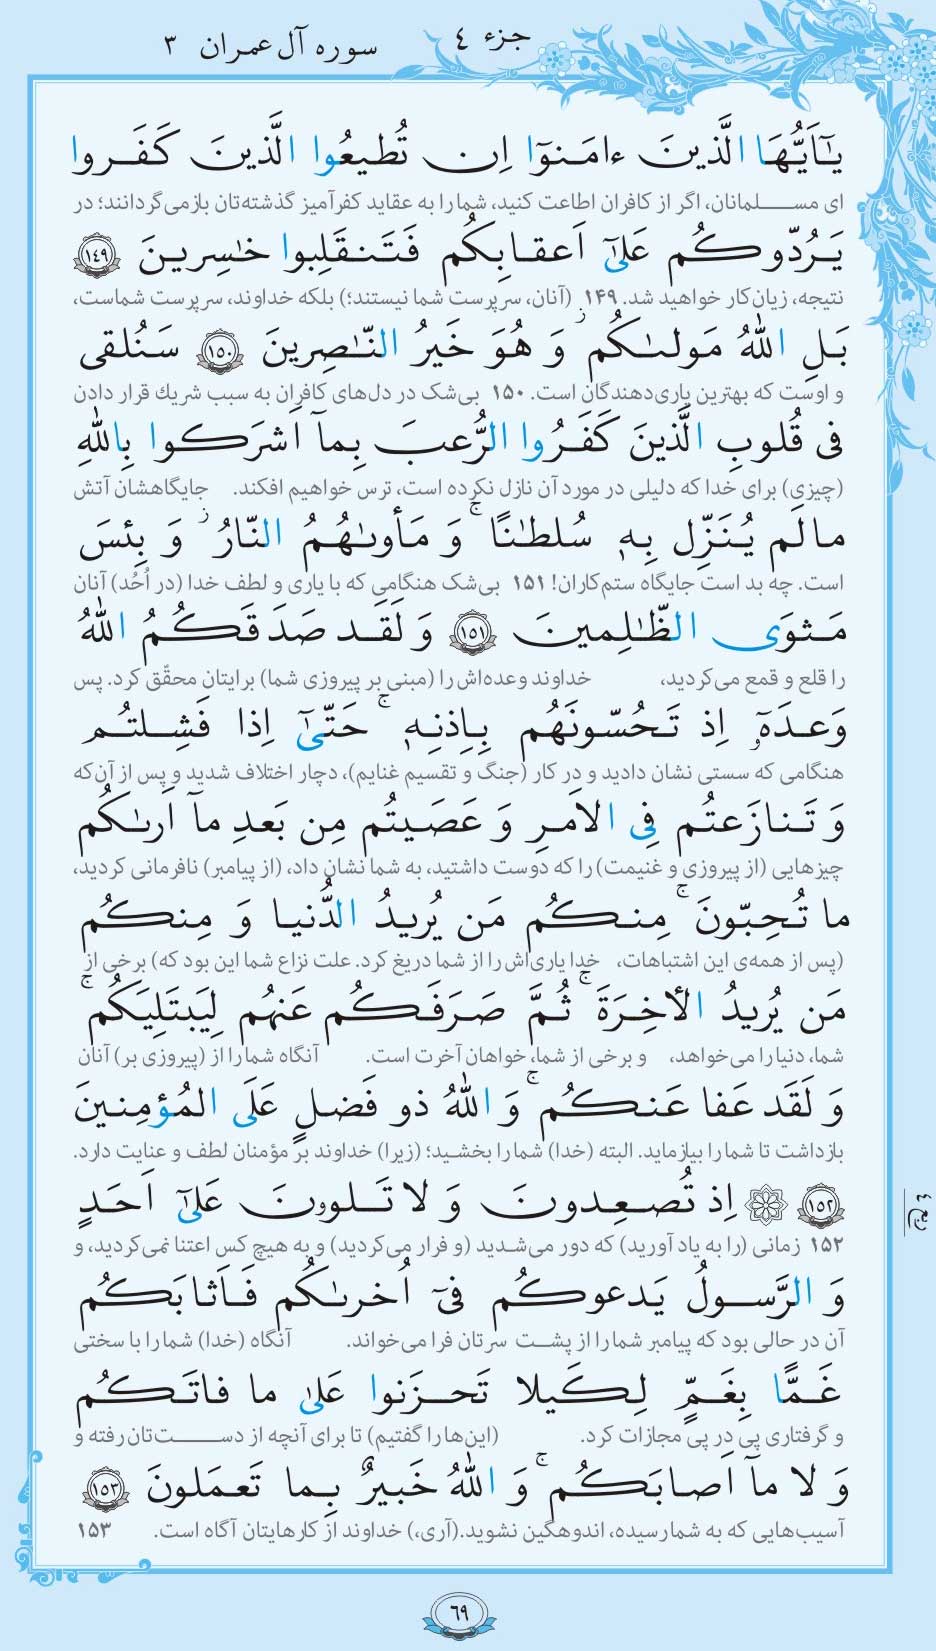 جزء ٤
سوره آل عمران ٣
يٰٓاَيُّهَا الَّذينَ ءامَنوٓا اِن تُطيعُوا الَّذينَ كَفَروا
ای مسلمانان، اگر از کافران اطاعت کنید، شما را به عقاید کفرآمیز گذشته‌تان بازمی‌گردانند؛ در
يَرُدّوكُم عَلىٰٓ اَعقابِكُم فَتَنقَلِبوا خٰسِرينَ ١٤٩
نتیجه، زیان‌کار خواهید شد. ۱۴۹ (آنان، سرپرست شما نیستند؛) بلکه خداوند، سرپرست شماست،
بَلِ اللّٰهُ مَولىٰكُم ۖ وَ هُوَ خَيرُ النّٰصِرينَ ١٥٠ سَنُلقى
و اوست که بهترین یاری‌دهندگان است. ۱۵۰ بی‌شک در دل‌های کافران به سبب شریك قرار دادن
فى قُلوبِ الَّذينَ كَفَرُوا الرُّعبَ بِمآ اَشرَكوا بِاللّٰهِ
(چیزی) برای خدا که دلیلی در مورد آن نازل نکرده است، ترس خواهیم افکند. جایگاهشان آتش
ما لَم يُنَزِّل بِه۪ سُلطٰنًا ۚ وَ مَأوىٰهُمُ النّارُ ۖ وَ بِئسَ
است. چه بد است جایگاه ستم‌کاران! ۱۵۱ بی‌شک هنگامی که با یاری و لطف خدا (در اُحُد) آنان
مَثوَى الظّٰلِمينَ ١٥١ وَ لَقَد صَدَقَكُمُ اللّٰهُ
را قلع و قمع می‌کردید، خداوند وعده‌اش را (مبنی بر پیروزی شما) برایتان محقّق کرد. پس
وَعدَهٓ اِذ تَحُسّونَهُم بِاِذنِه۪ ۚ حَتّىٰٓ اِذا فَشِلتُم
هنگامی که سستی نشان دادید و در کار (جنگ و تقسیم غنایم)، دچار اختلاف شدید و پس از آن‌که
وَ تَنازَعتُم فِى الاَمرِ وَ عَصَيتُم مِن بَعدِ مآ اَرىٰكُم
چیزهایی (از پیروزی و غنیمت) را که دوست داشتید، به شما نشان داد، (از پیامبر) نافرمانی کردید،
ما تُحِبّونَ ۚ مِنكُم مَن يُريدُ الدُّنيا وَ مِنكُم
(پس از همه‌ی این اشتباهات، خدا یاری‌اش را از شما دریغ کرد. علت نزاع شما این بود که) برخی از
مَن يُريدُ الأخِرَةَ ۚ ثُمَّ صَرَفَكُم عَنهُم لِيَبتَلِيَكُم ۚ
شما، دنیا را می‌خواهد، و برخی از شما، خواهان آخرت است. آنگاه شما را از (پیروزی بر) آنان
وَ لَقَد عَفا عَنكُم ۚ وَ اللّٰهُ ذو فَضلٍ عَلَى المُؤمِنينَ
بازداشت تا شما را بیازماید. البته (خدا) شما را بخشید؛ (زیرا) خداوند بر مؤمنان لطف و عنایت دارد.
١٥٢ اِذ تُصعِدونَ وَ لا تَلوونَ عَلىٰٓ اَحَدٍ
ربع ٤
۱۵۲ زمانی (را به یاد آورید) که دور می‌شدید (و فرار می‌کردید) و به هیچ کس اعتنا نمی‌کردید، و
وَ الرَّسولُ يَدعوكُم فىٓ اُخرىٰكُم فَاَثابَكُم
آن در حالی بود که پیامبر شما را از پشت سرتان فرا می‌خواند. آنگاه (خدا) شما را با سختی
غَمًّا بِغَمٍّ لِكَيلا تَحزَنوا عَلىٰ ما فاتَكُم
و گرفتاری پی در پی مجازات کرد. (این‌ها را گفتیم) تا برای آنچه از دست‌تان رفته و
وَ لا مآ اَصابَكُم ۚ وَ اللّٰهُ خَبيرٌ بِما تَعمَلونَ ١٥٣
آسیب‌هایی که به شما رسیده، اندوهگین نشوید.(آری،) خداوند از کارهایتان آگاه است. ۱۵۳
٦٩